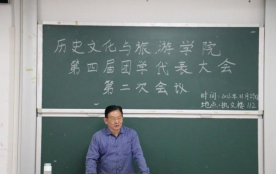 历史文化与旅游学院
第四届团学代表大会
第二次会议
时间:
地点: